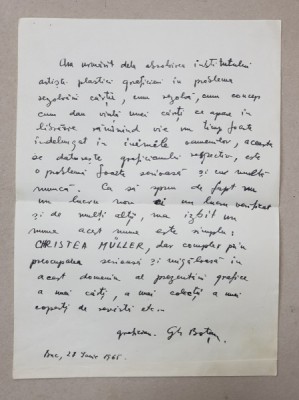 Am urmărit dela absolvirea institutului
artiști plastici graficieni în problema
rezolvării cărții, cum rezolvă, cum concep
cum dau viață unei cărți ce apare în
librărie rămînînd vie un timp foarte
îndelungat în inimile oamenilor, aceasta
se datorește graficianului respectiv, este
o problemă foarte serioasă și cu multă
muncă. Ca să spun de fapt
un lucru nou ci un lucru verificat
și de mulți alții, m-a izbit un
nume acest nume este simplu:
CHRISTEA MÜLLER, dar complex prin
preocuparea serioasă și migăloasă în
acest domeniu al prezentării grafice
a unei cărți, a unei colecții a unei
coperți de reviste etc..
grafician. Gh Boțan
Buc, 28 Iunie 1965.